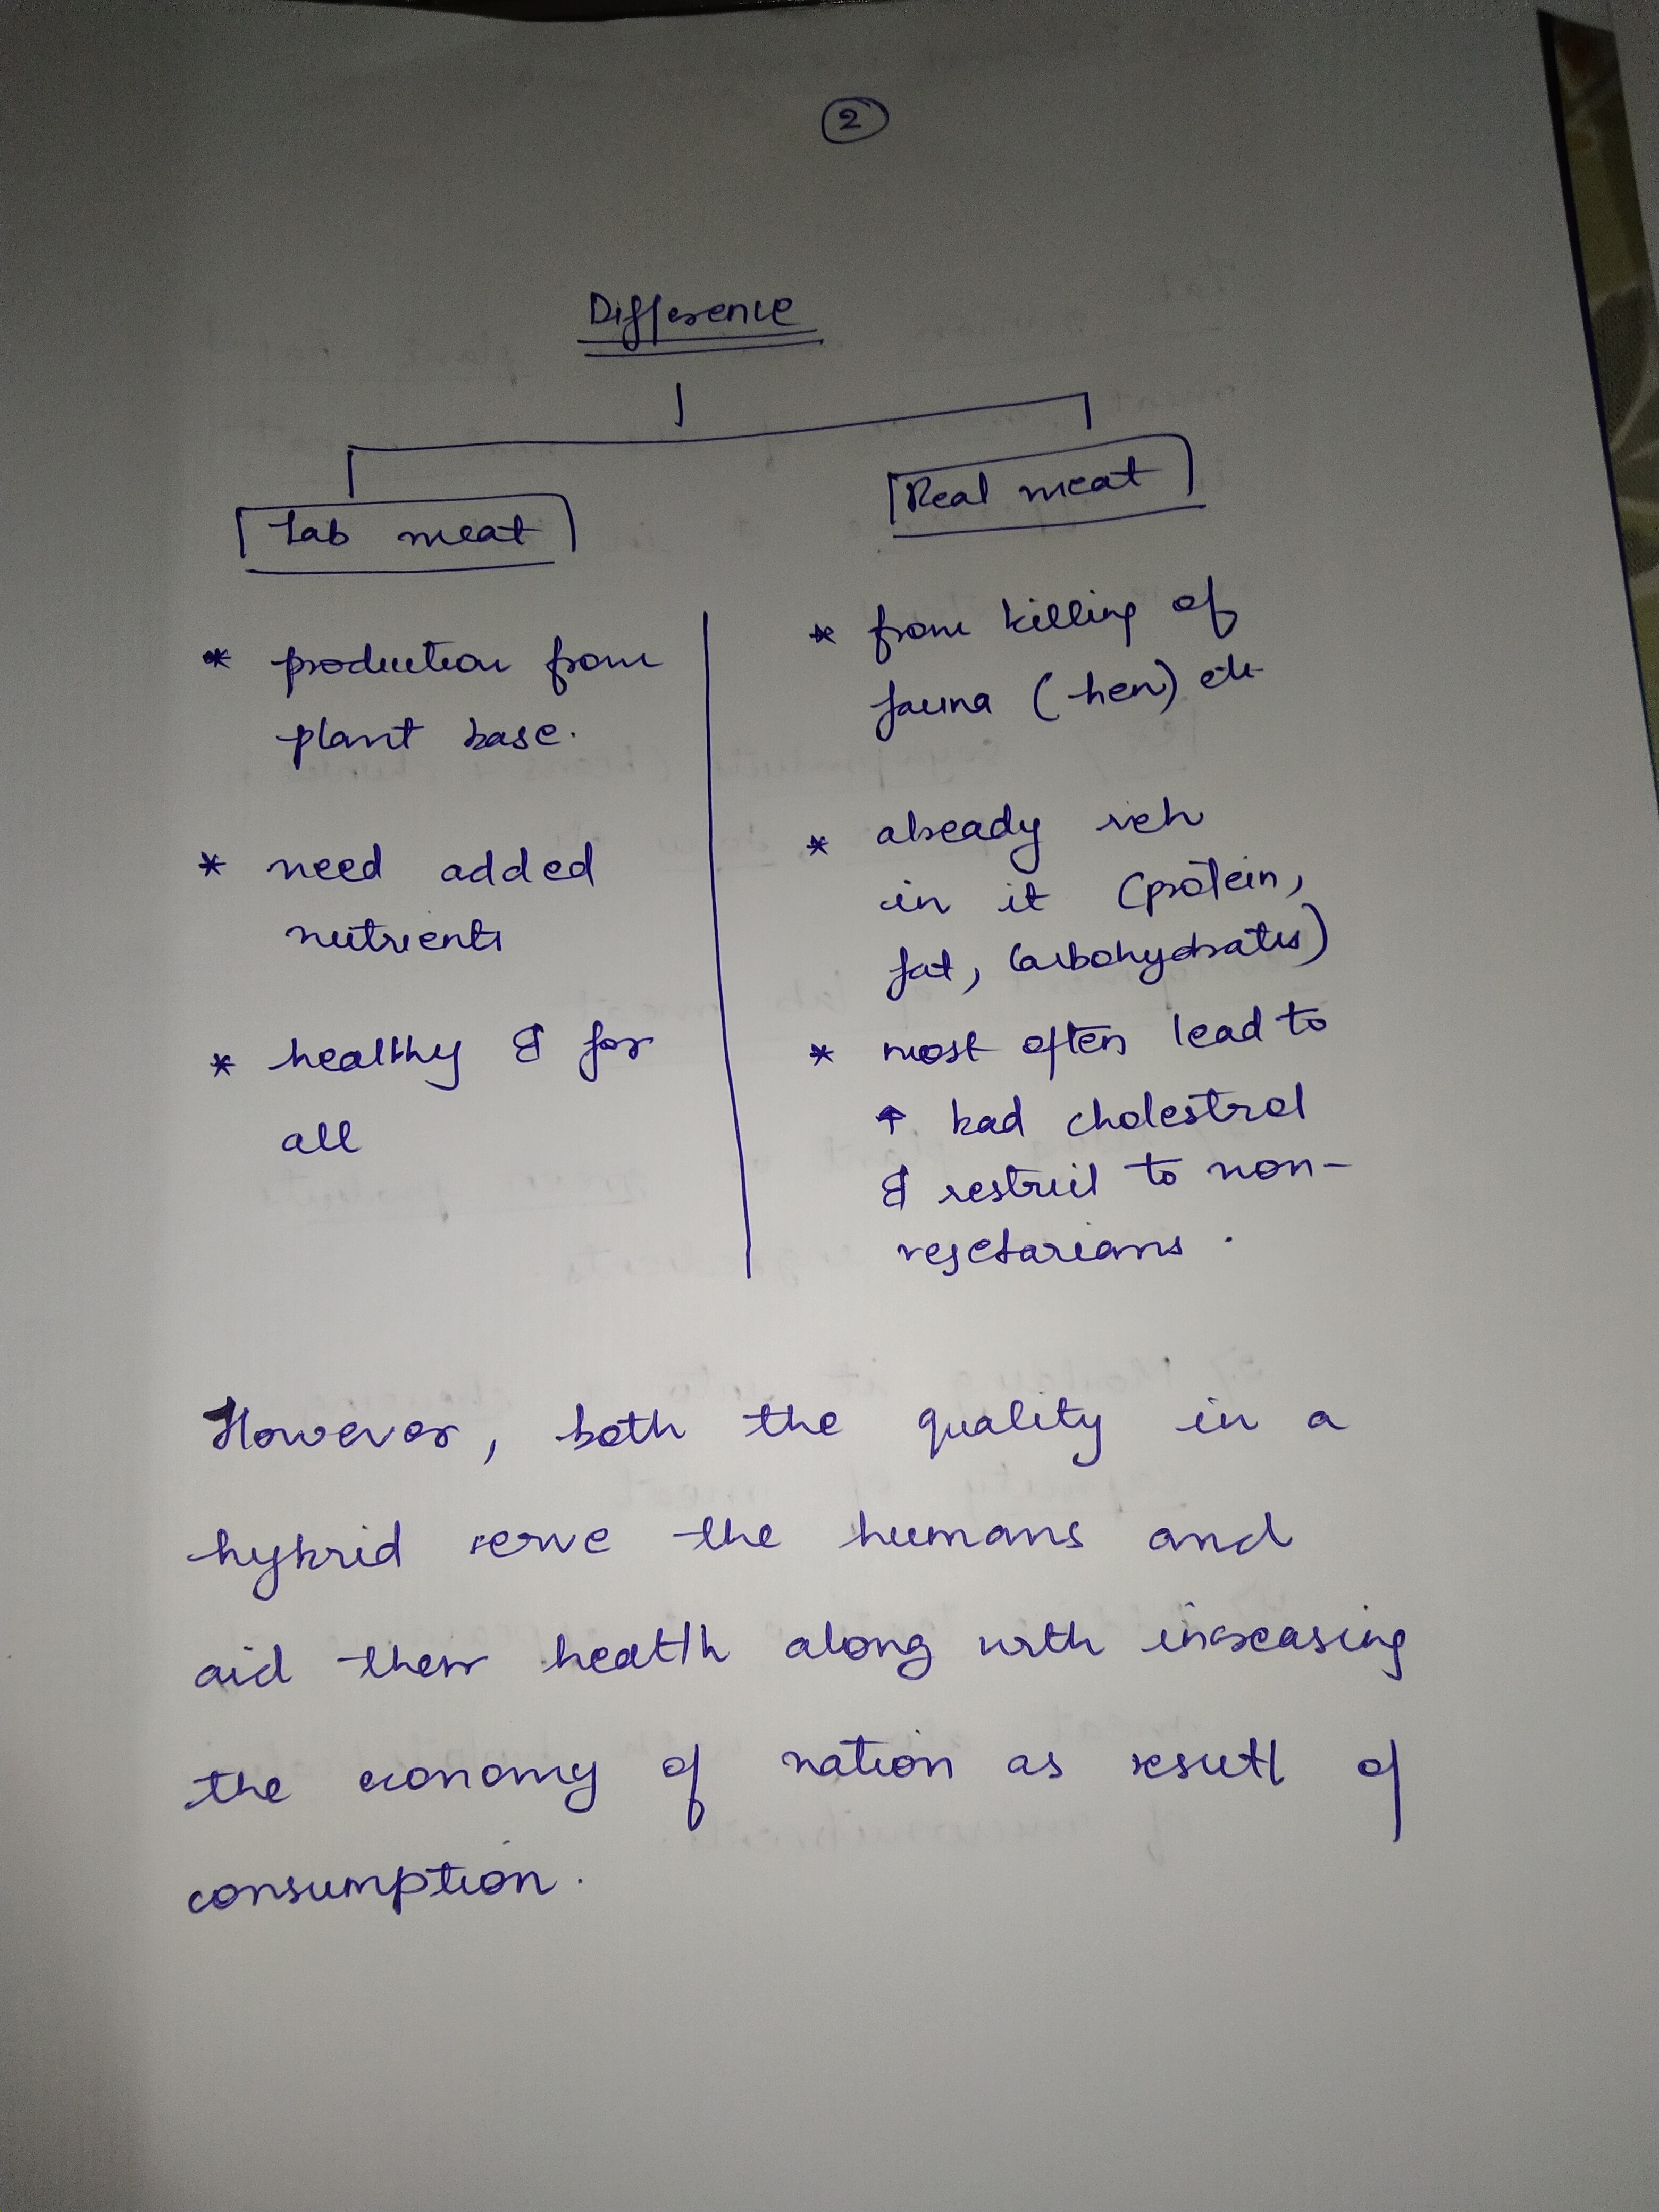 2
Difference
Lab meat
Real meat
* production from
plant base.
* need added
nutrients
* healthy & for
all
* from killing of
fauna (hen) etc
* already rich
in it (protein,
fat, Carbohydrates)
* most often lead to
↑ bad cholestrol
& restrict to non-
vegetarians.
However, both the quality in a
hybrid serve the humans and
aid their health along with increasing
the economy of nation as result of
consumption.